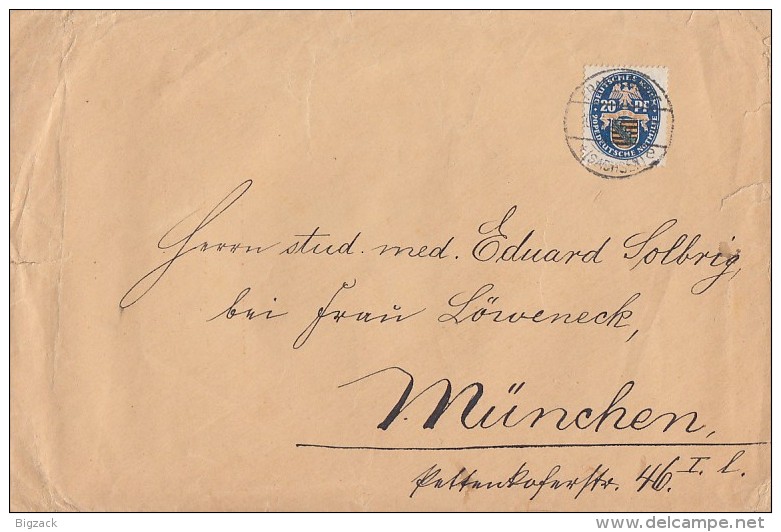 DEUTSCHES REICH
20 PF
20PF DEUTSCHE NOTHILFE
(SACHSEN)
Herrn stud. med. Eduard Solbrig,
bei Frau Löweneck,
München,
Pettenkoferstr. 46. I. l.
Bigzack
www.delcampe.net